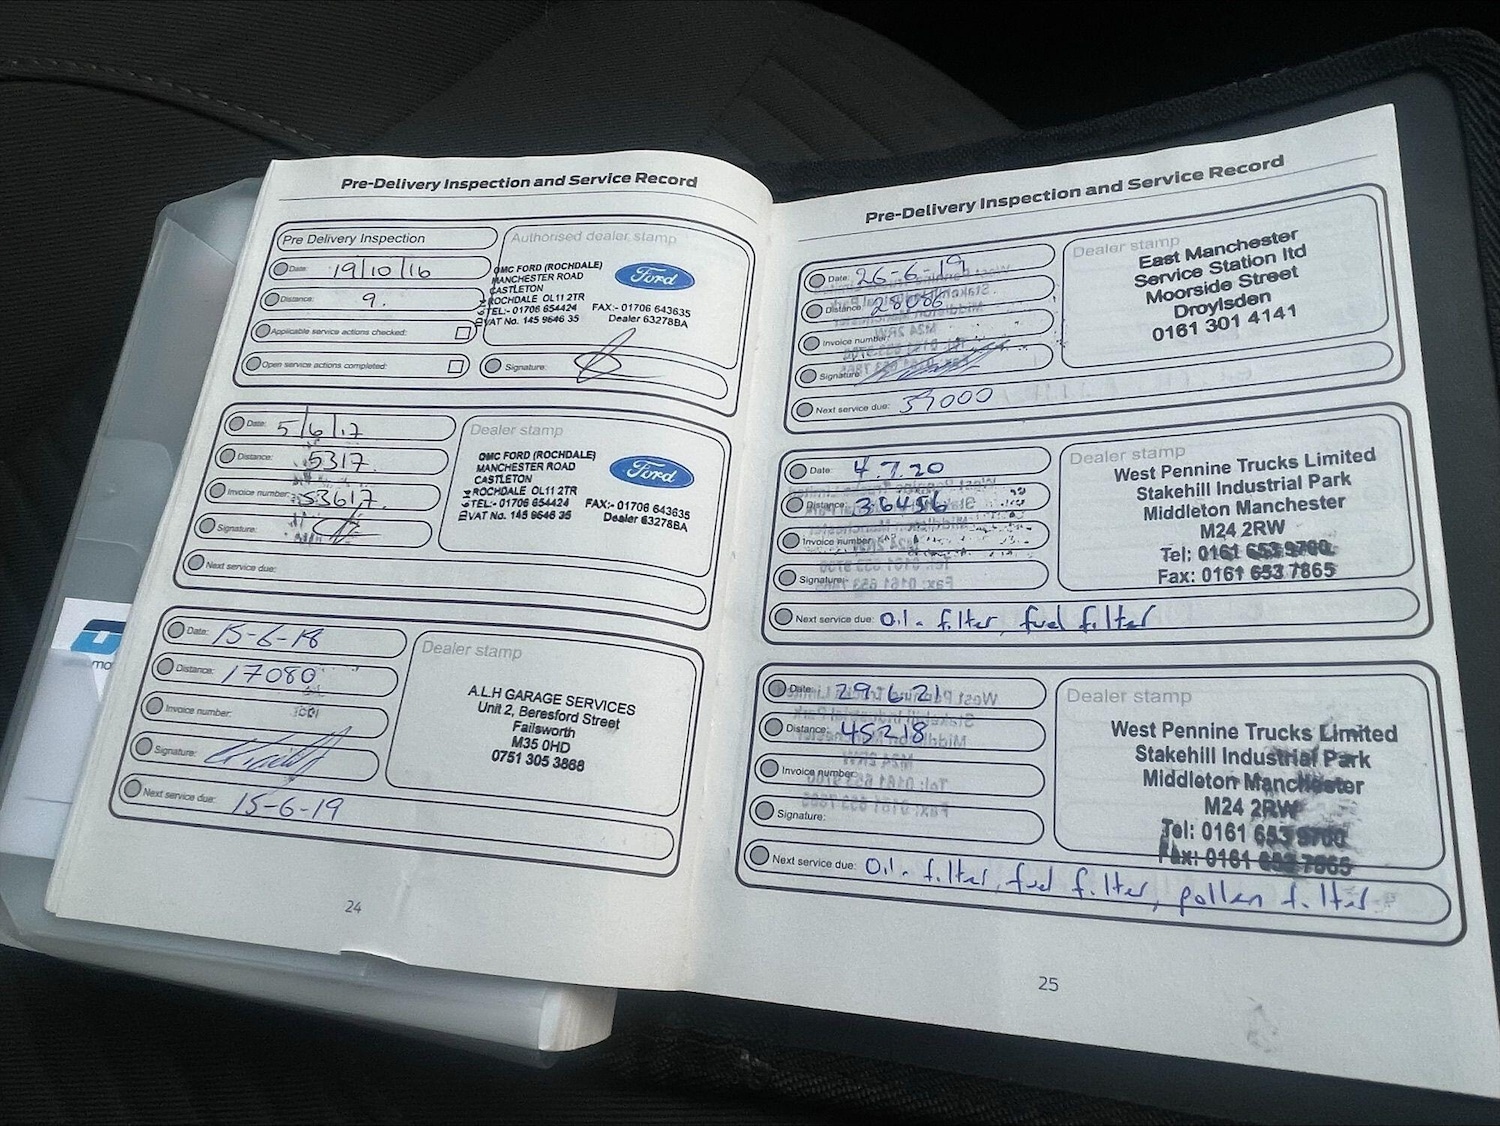 Pre-Delivery Inspection and Service Record
Pre Delivery Inspection
Date: 19/10/16
Distance: 9.
Applicable service actions checked:
Open service actions completed:
Authorised dealer stamp
OMC FORD (ROCHDALE)
MANCHESTER ROAD
CASTLETON
ROCHDALE OL11 2TR
TEL:- 01706 654424 FAX:- 01706 643635
VAT No. 145 9646 35 Dealer 63278BA
Ford
Signature:
Date: 5/6/17
Distance: 5317.
Invoice number: 53617.
Signature:
Next service due:
Dealer stamp
OMC FORD (ROCHDALE)
MANCHESTER ROAD
CASTLETON
ROCHDALE OL11 2TR
TEL:- 01706 654424 FAX:- 01706 643635
VAT No. 145 9646 35 Dealer 63278BA
Ford
Date: 15-6-18
Distance: 17080
Invoice number:
Signature:
Next service due: 15-6-19
Dealer stamp
A.L.H GARAGE SERVICES
Unit 2, Beresford Street
Failsworth
M35 0HD
0751 305 3868
24
Pre-Delivery Inspection and Service Record
Date: 26-6-19
Distance: 28086
Invoice number:
Signature
Next service due: 39000
Dealer stamp
East Manchester
Service Station ltd
Moorside Street
Droylsden
0161 301 4141
Date: 4.7.20
Distance: 36456
Invoice number
Signature:
Next service due: Oil filter, fuel filter
Dealer stamp
West Pennine Trucks Limited
Stakehill Industrial Park
Middleton Manchester
M24 2RW
Tel: 0161 653 9700
Fax: 0161 653 7865
Date: 29.6.21
Distance: 45218
Invoice number:
Signature:
Next service due: Oil filter, fuel filter, pollen filter
Dealer stamp
West Pennine Trucks Limited
Stakehill Industrial Park
Middleton Manchester
M24 2RW
Tel: 0161 653 9700
Fax: 0161 653 7865
25